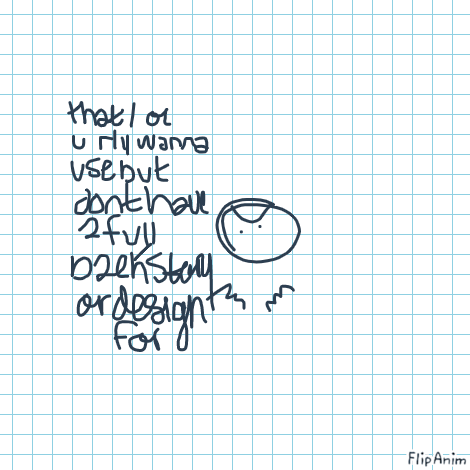 that 1 oc
u rly wanna
use but
dont have
a full
backstory
or design
for
FlipAnim